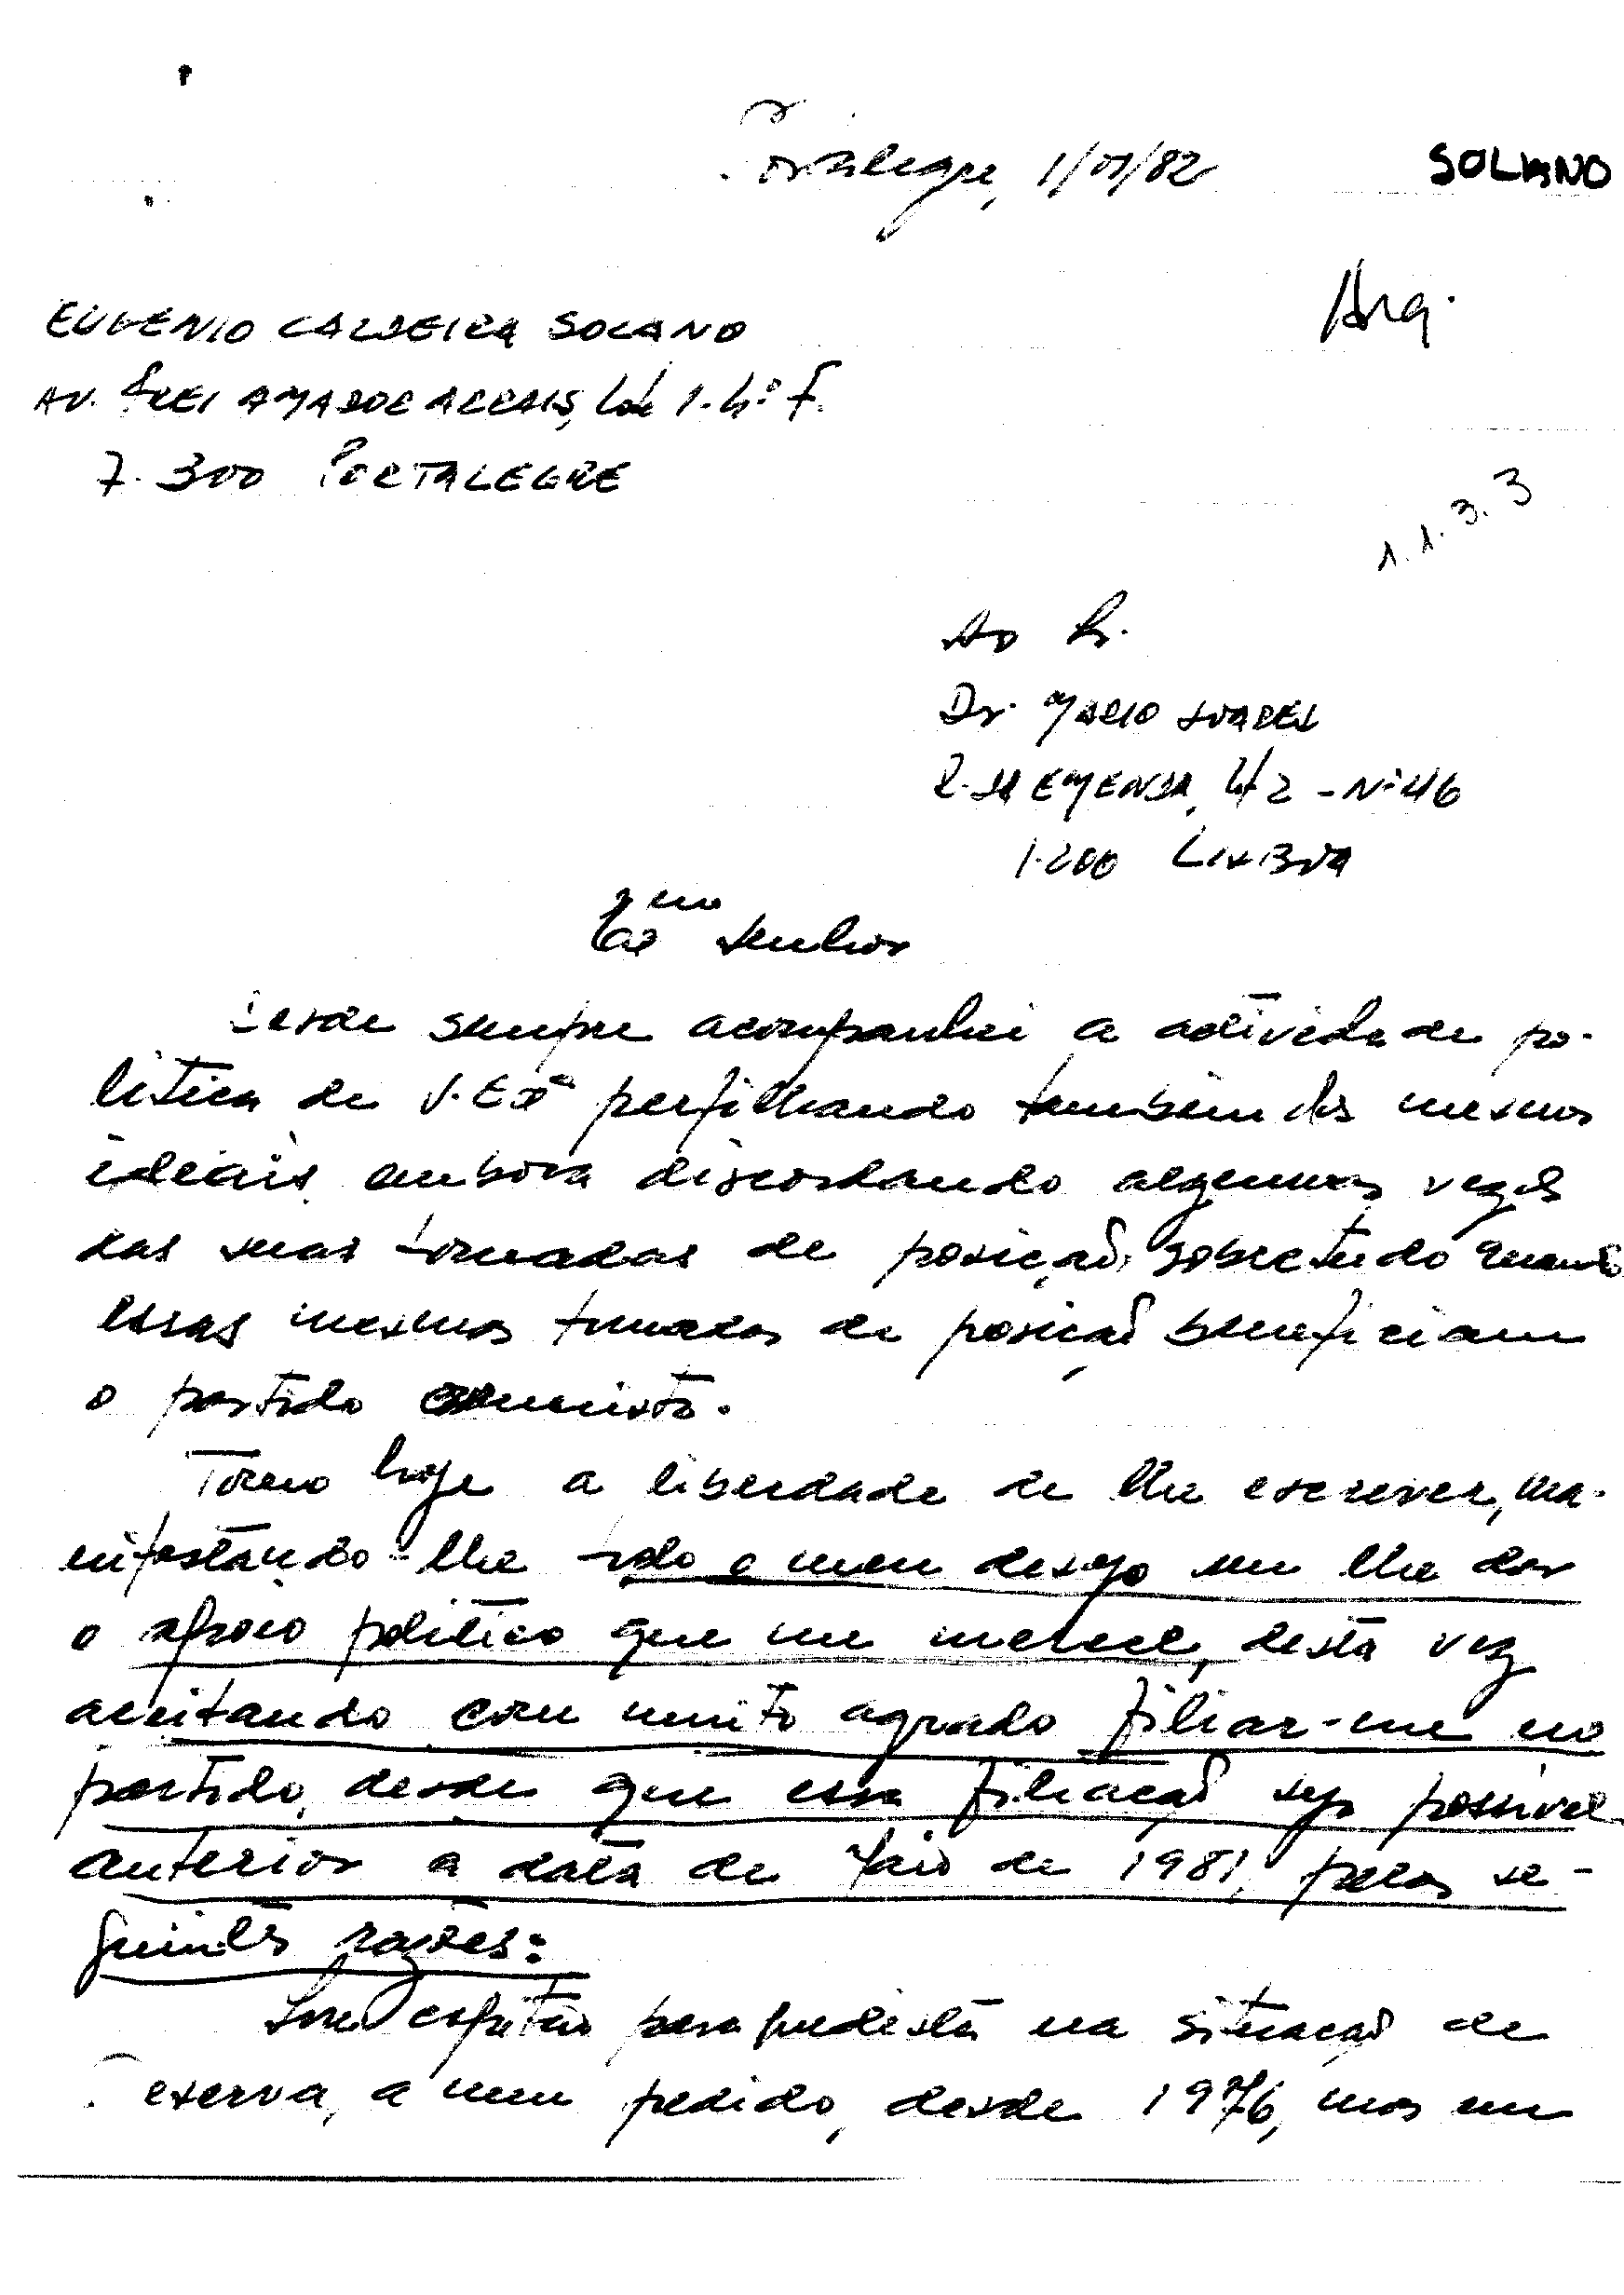 Portalegre, 1/01/82
SOLANO
Arq.
EUGENIO CALDEIRA SOLANO
AV. FREI AMADOR ARRAIS, Lote 1-4º F.
7.300 PORTALEGRE
1.1.3.3
Ao Sr.
Dr. MARIO SOARES
R. DA EMENDA, Nº 46
1.200 LISBOA
Exmo Senhor
Desde sempre acompanhei a actividade po-
litica de V. Exª perfilhando tambem dos mesmos
ideais, embora discordando algumas vezes
das suas tomadas de posição, sobretudo quando
essas mesmas tomadas de posição beneficiam
o partido comunista.
Tomo hoje a liberdade de lhe escrever, ma-
nifestando-lhe todo o meu desejo em lhe dar
o apoio politico que me merece, desta vez
aceitando com muito agrado filiar-me no
partido, desde que essa filiação seja possivel
anterior a data de Maio de 1981, pelas se-
guintes razões:
Sou capitão paraquedista na situação de
reserva, a meu pedido, desde 1976, mas em